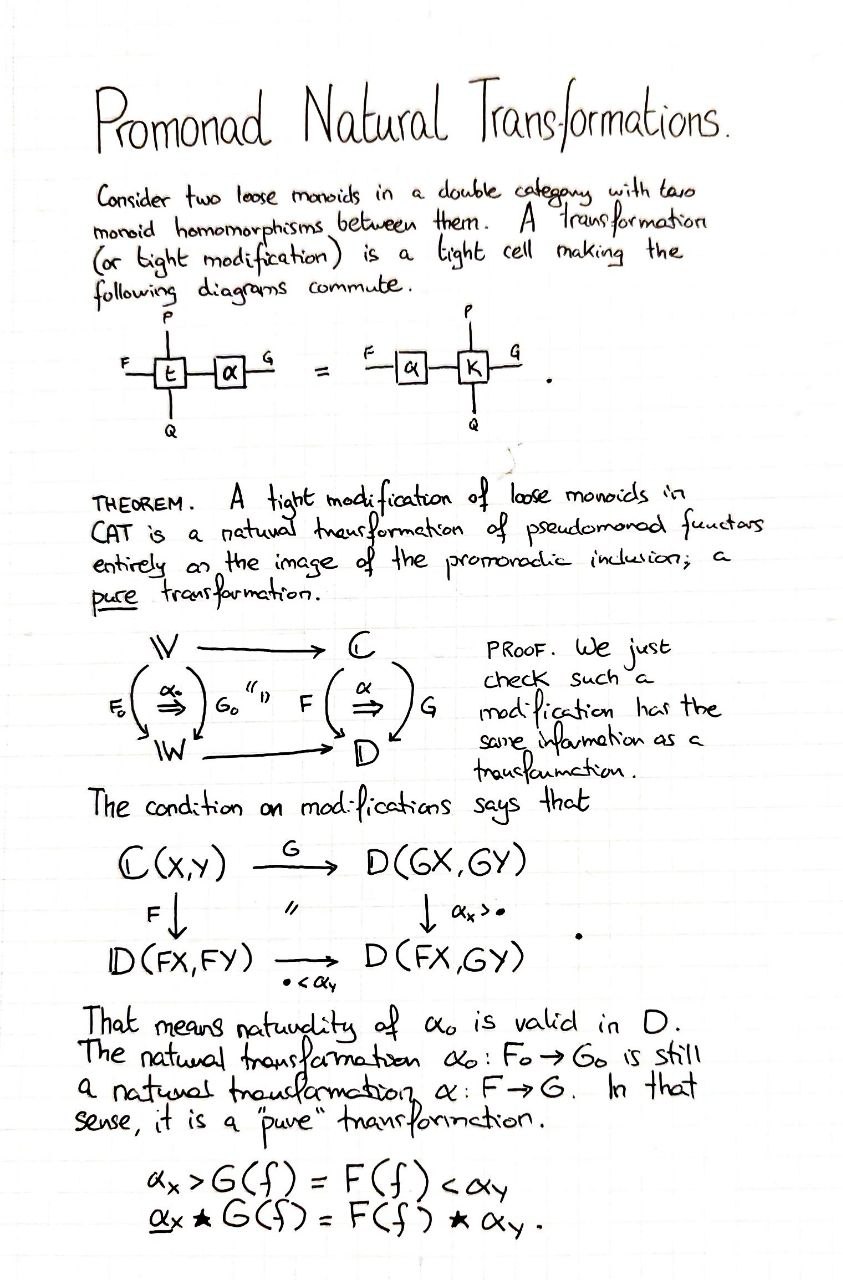 Promonad Natural Transformations.
Consider two loose monoids in a double category with two
monoid homomorphisms between them. A transformation
(or tight modification) is a tight cell making the
following diagrams commute.
P P
F t α G = F α K G .
Q Q
THEOREM. A tight modification of loose monoids in
CAT is a natural transformation of pseudomonad functors
entirely on the image of the promonadic inclusion; a
pure transformation.
𝕍 → ℂ
F₀ α₀ ⇒ G₀ "〃" F α ⇒ G
𝕎 → 𝔻
PROOF. We just
check such a
modification has the
same information as a
transformation.
The condition on modifications says that
ℂ(X,Y) G → D(GX,GY)
F ↓ 〃 ↓ αₓ > • .
𝔻(FX,FY) → D(FX,GY)
• < αᵧ
That means naturality of α₀ is valid in D.
The natural transformation α₀ : F₀ → G₀ is still
a natural transformation α : F → G. In that
sense, it is a "pure" transformation.
αₓ > G(f) = F(f) < αᵧ
αₓ ★ G(f) = F(f) ★ αᵧ .